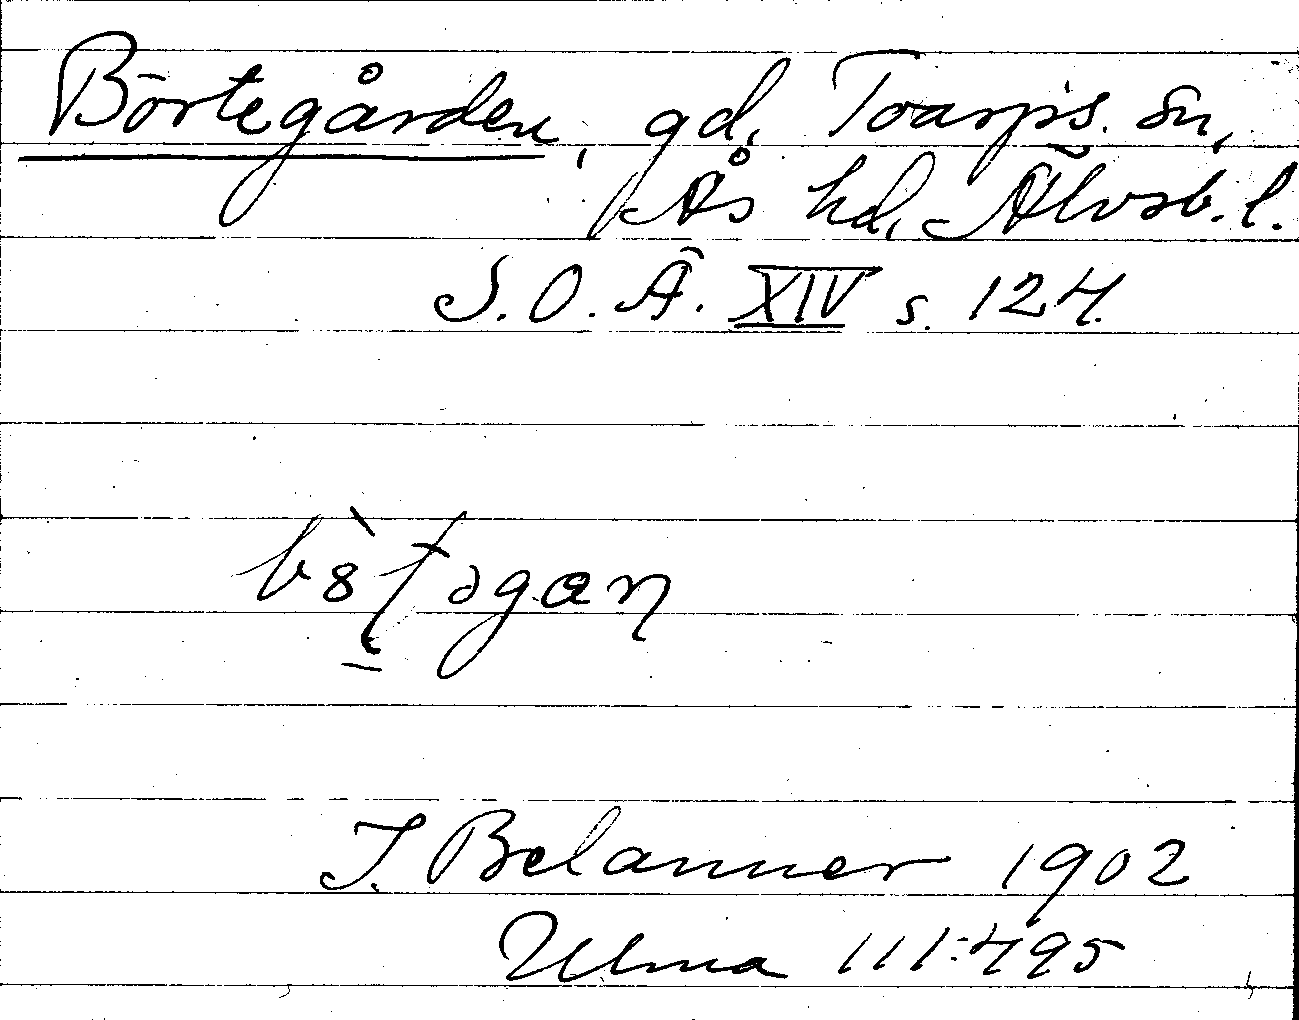 Börtegården, gd, Toarps. sn,
Ås hd, Älvsb. l.
S.O.Ä. XIV s. 124.
T. Belanner 1902
Ulma 111:495